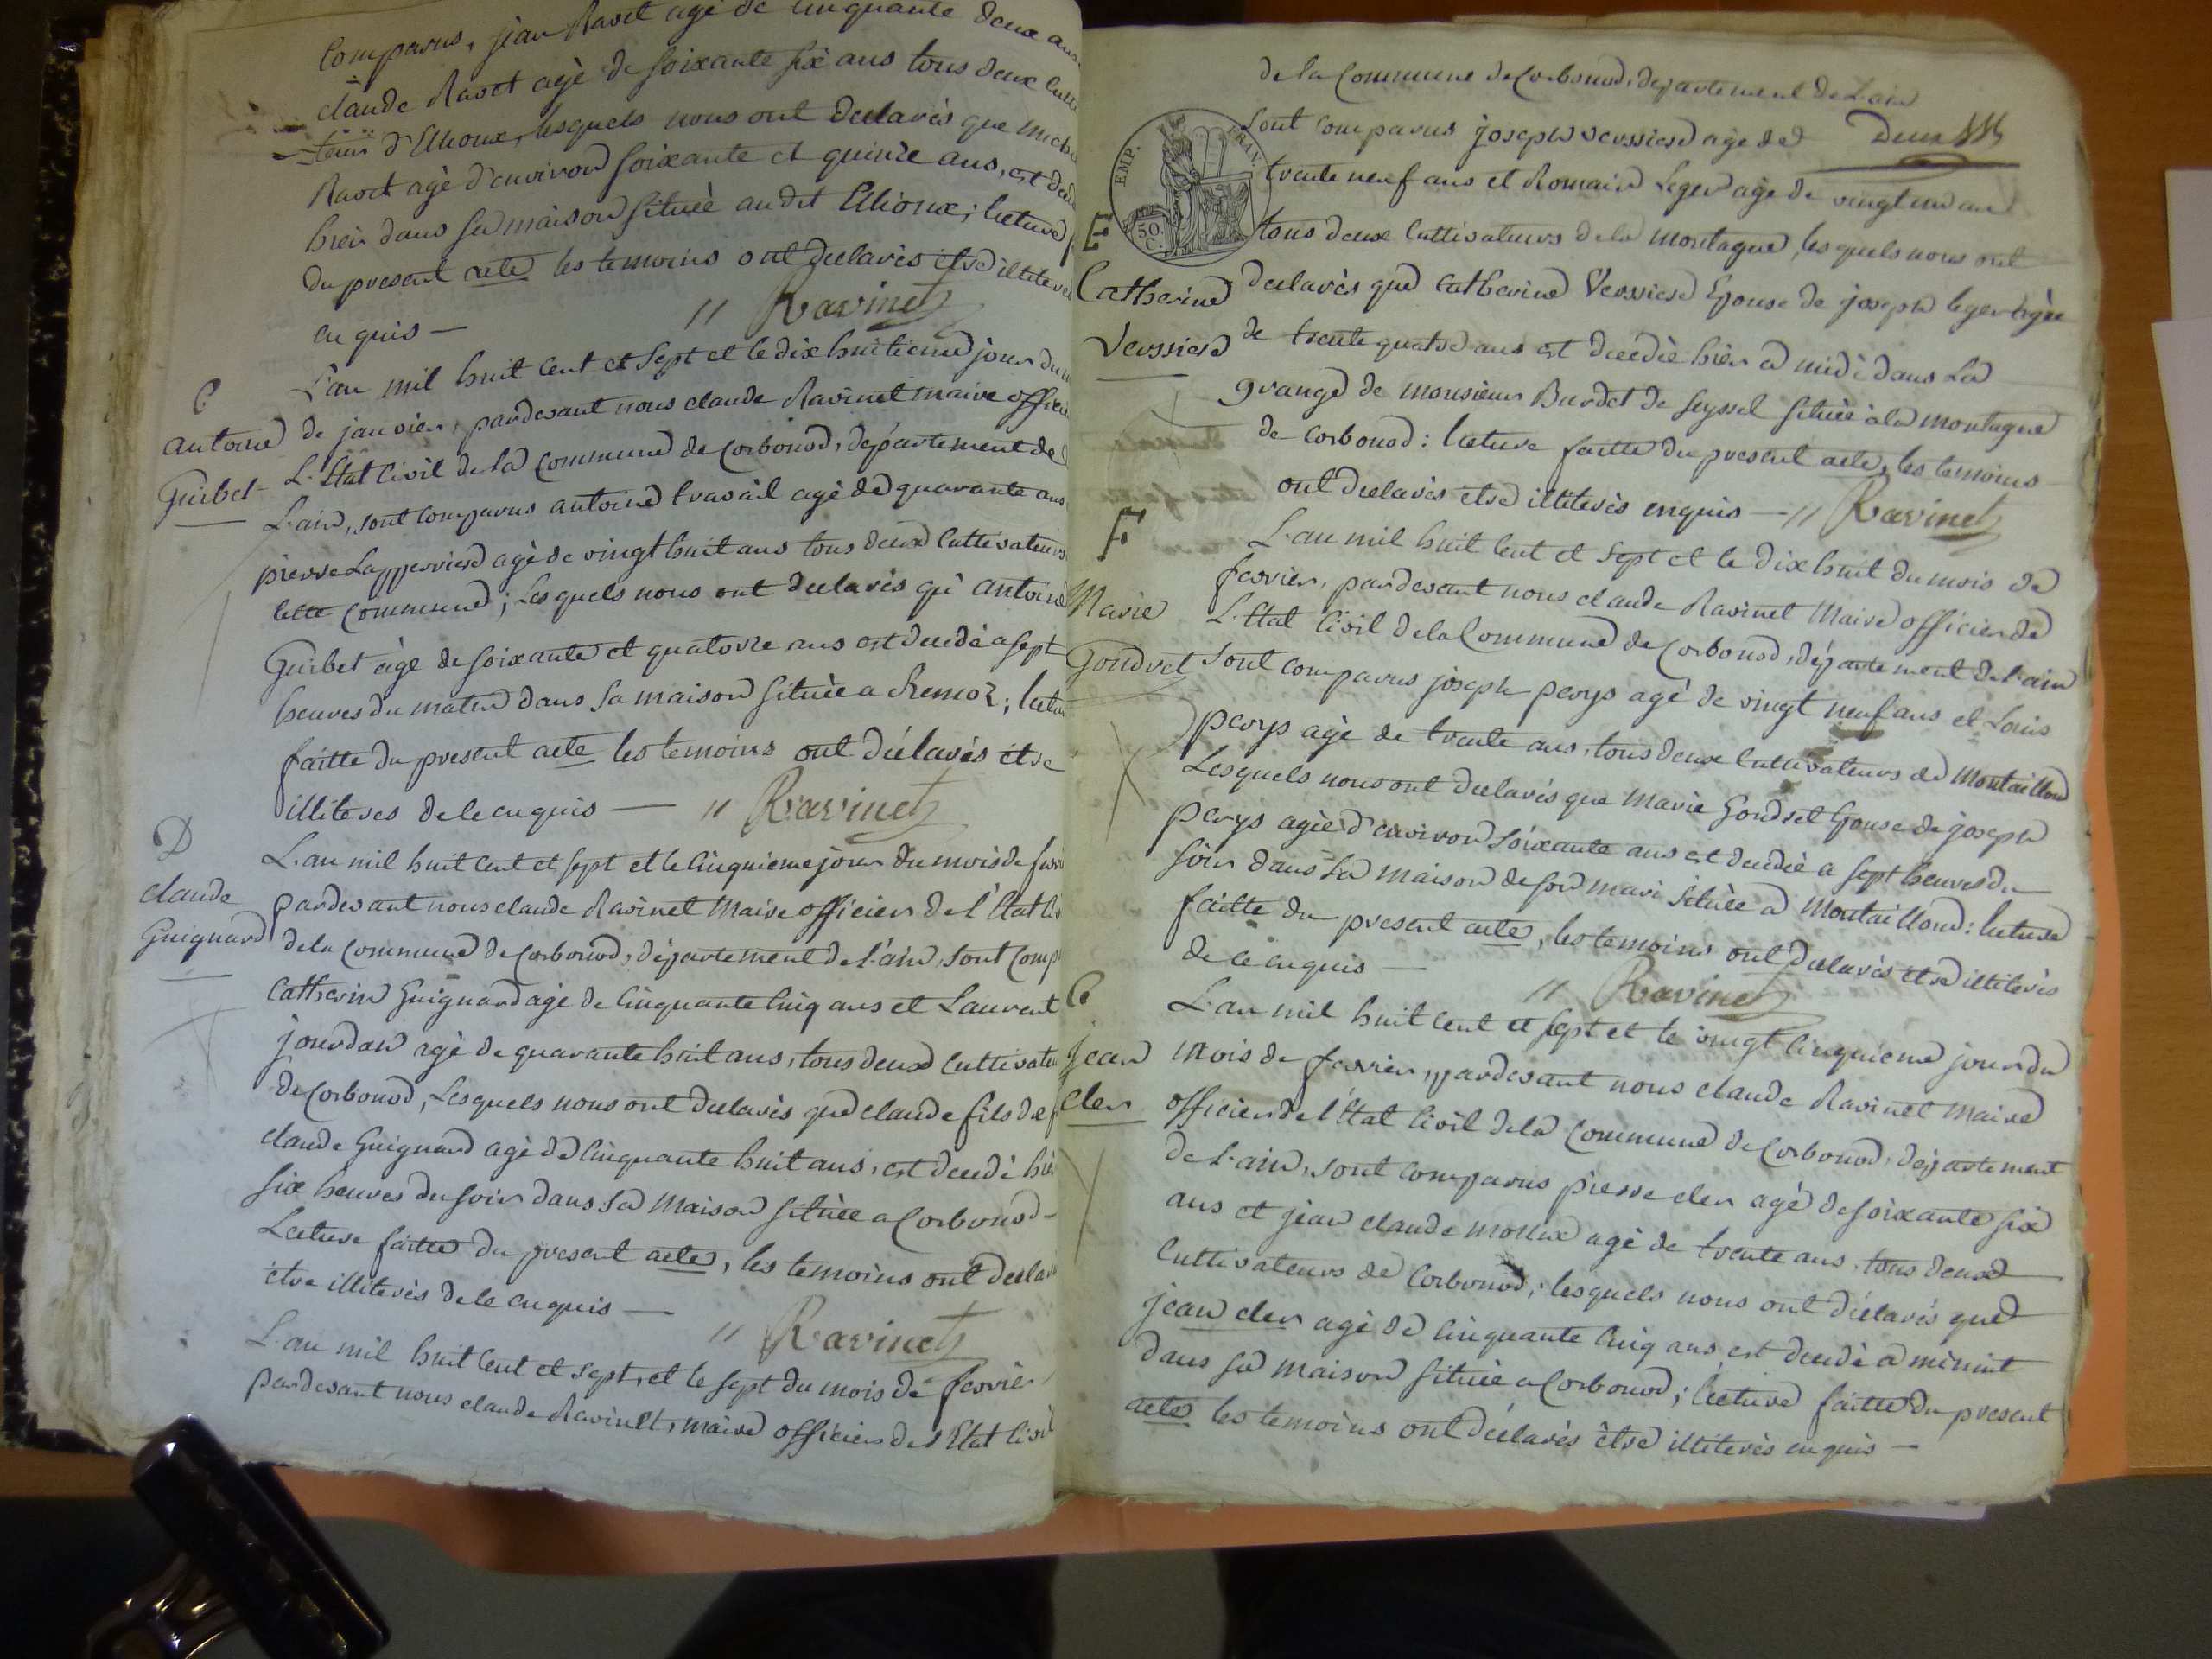 Comparus, jean Ravet agé de cinquante deux ans
claude Ravet agé de soixante six ans tous deux
d'Elioux, lesquels nous ont declarés que
Ravet agé d'environ soixante et quinze ans, est
hier dans sa maison située audit Elioux; lecture
du present acte les temoins ont declarés etre illiterés
enquis — // Ravinet
C
antoine
Guibet
L'an mil huit cent et sept et le dix huitieme jour du
de janvier, pardevant nous claude Ravinet maire officier
L'Etat Civil de la Commune de Corbonod, departement de
L'ain, sont comparus antoine travail agé de quarante ans
pierre Laperriere agé de vingt huit ans tous deux Cultivateurs
cette Commune; Lesquels nous ont declarés qu'antoine
Guibet agé de soixante et quatorze ans est decedé a sept
heures du matin dans sa maison située a Remoz;
faitte du present acte les temoins ont déclarés etre
illiteres de ce enquis — // Ravinet
D
claude
Guignard
L'an mil huit cent et sept et le Cinquieme jour du mois de
pardevant nous claude Ravinet Maire officier de l'Etat
de la Commune de Corbonod, département de l'ain, sont
Catherin Guignard agé de Cinquante Cinq ans et Laurent
jourdan agé de quarante huit ans, tous deux Cultivate
de Corbonod, Lesquels nous ont declarés que claude fils de
claude Guignard agé de Cinquante huit ans, est decedé
six heures du soir dans sa Maison située a Corbonod
Lecture faitte du present acte, les temoins ont
étre illiterés de ce enquis — // Ravinet
L'an mil huit cent et sept, et le sept du mois de fevrier
pardevant nous claude Ravinet, maire officier de l Etat Civil
de la Commune de Corbonod, departement de L'ain
Deux
EMP. FRAN.
50.
C.
sont comparus joseph Verssiere age de
trente neuf ans et Romain Leger agé de vingt un ans
tous deux Cultivateurs de la montagne, lesquels nous ont
E
Catherine
Verssiere
declarés que Catherine Verssiere Epouse de joseph leger agée
de trente quatre ans est decedée hier a midi dans La
grange de monsieur Burdet de seyssel située à la montagne
de Corbonod: lecture faitte du present acte, les temoins
ont declarés etre illiterés enquis — // Ravinet
F
Marie
Gondret
L'an mil huit cent et sept et le dix huit du mois de
fevrier, pardevant nous claude Ravinet Maire officier de
L'Etat Civil de la Commune de Corbonod, département de l'ain
sont comparus joseph perys agé de vingt neuf ans et Louis
perys agé de trente ans, tous deux Cultivateurs de Montaillond
Lesquels nous ont declarés que Marie Gondret Epouse de joseph
perys agée d'environ soixante ans est decedée a sept heures du
soir dans La maison de son mari située a Montaillond: lecture
faitte du present acte, les temoins ont declarés etre illiterés
de ce enquis — // Ravinet
jean
cler
L'an mil huit cent et sept et le vingt cinquieme jour du
mois de fevrier, pardevant nous claude Ravinet Maire
officier de l'Etat Civil de la Commune de Corbonod, departement
de L'ain, sont comparus pierre cler agé de soixante six
ans et jean claude mollex agé de trente ans, tous deux
Cultivateurs de Corbonod; lesquels nous ont déclarés que
jean cler agé de Cinquante Cinq ans est decedé a minuit
dans sa maison située a Corbonod; lecture faitte du present
acte les temoins ont déclarés être illiterés enquis —